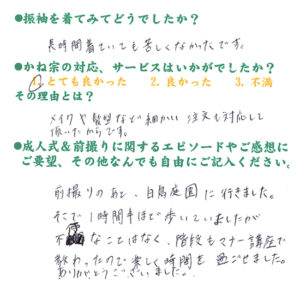 ●振袖を着てみてどうでしたか?
長時間着ていても苦しくなかったです。
●かね宗の対応、サービスはいかがでしたか?
1. とても良かった 2. 良かった 3. 不満
その理由とは?
メイクや髪型など細かい注文も対応して
頂いたからです。
●成人式&前撮りに関するエピソードやご感想に
ご要望、その他なんでも自由にご記入ください。
前撮りのあと、白鳥庭園に行きました。
そこで1時間半ほど歩いていましたが
不便なことはなく、階段もマナー講座で
教わったので楽しく時間を過ごせました。
ありがとうございました。